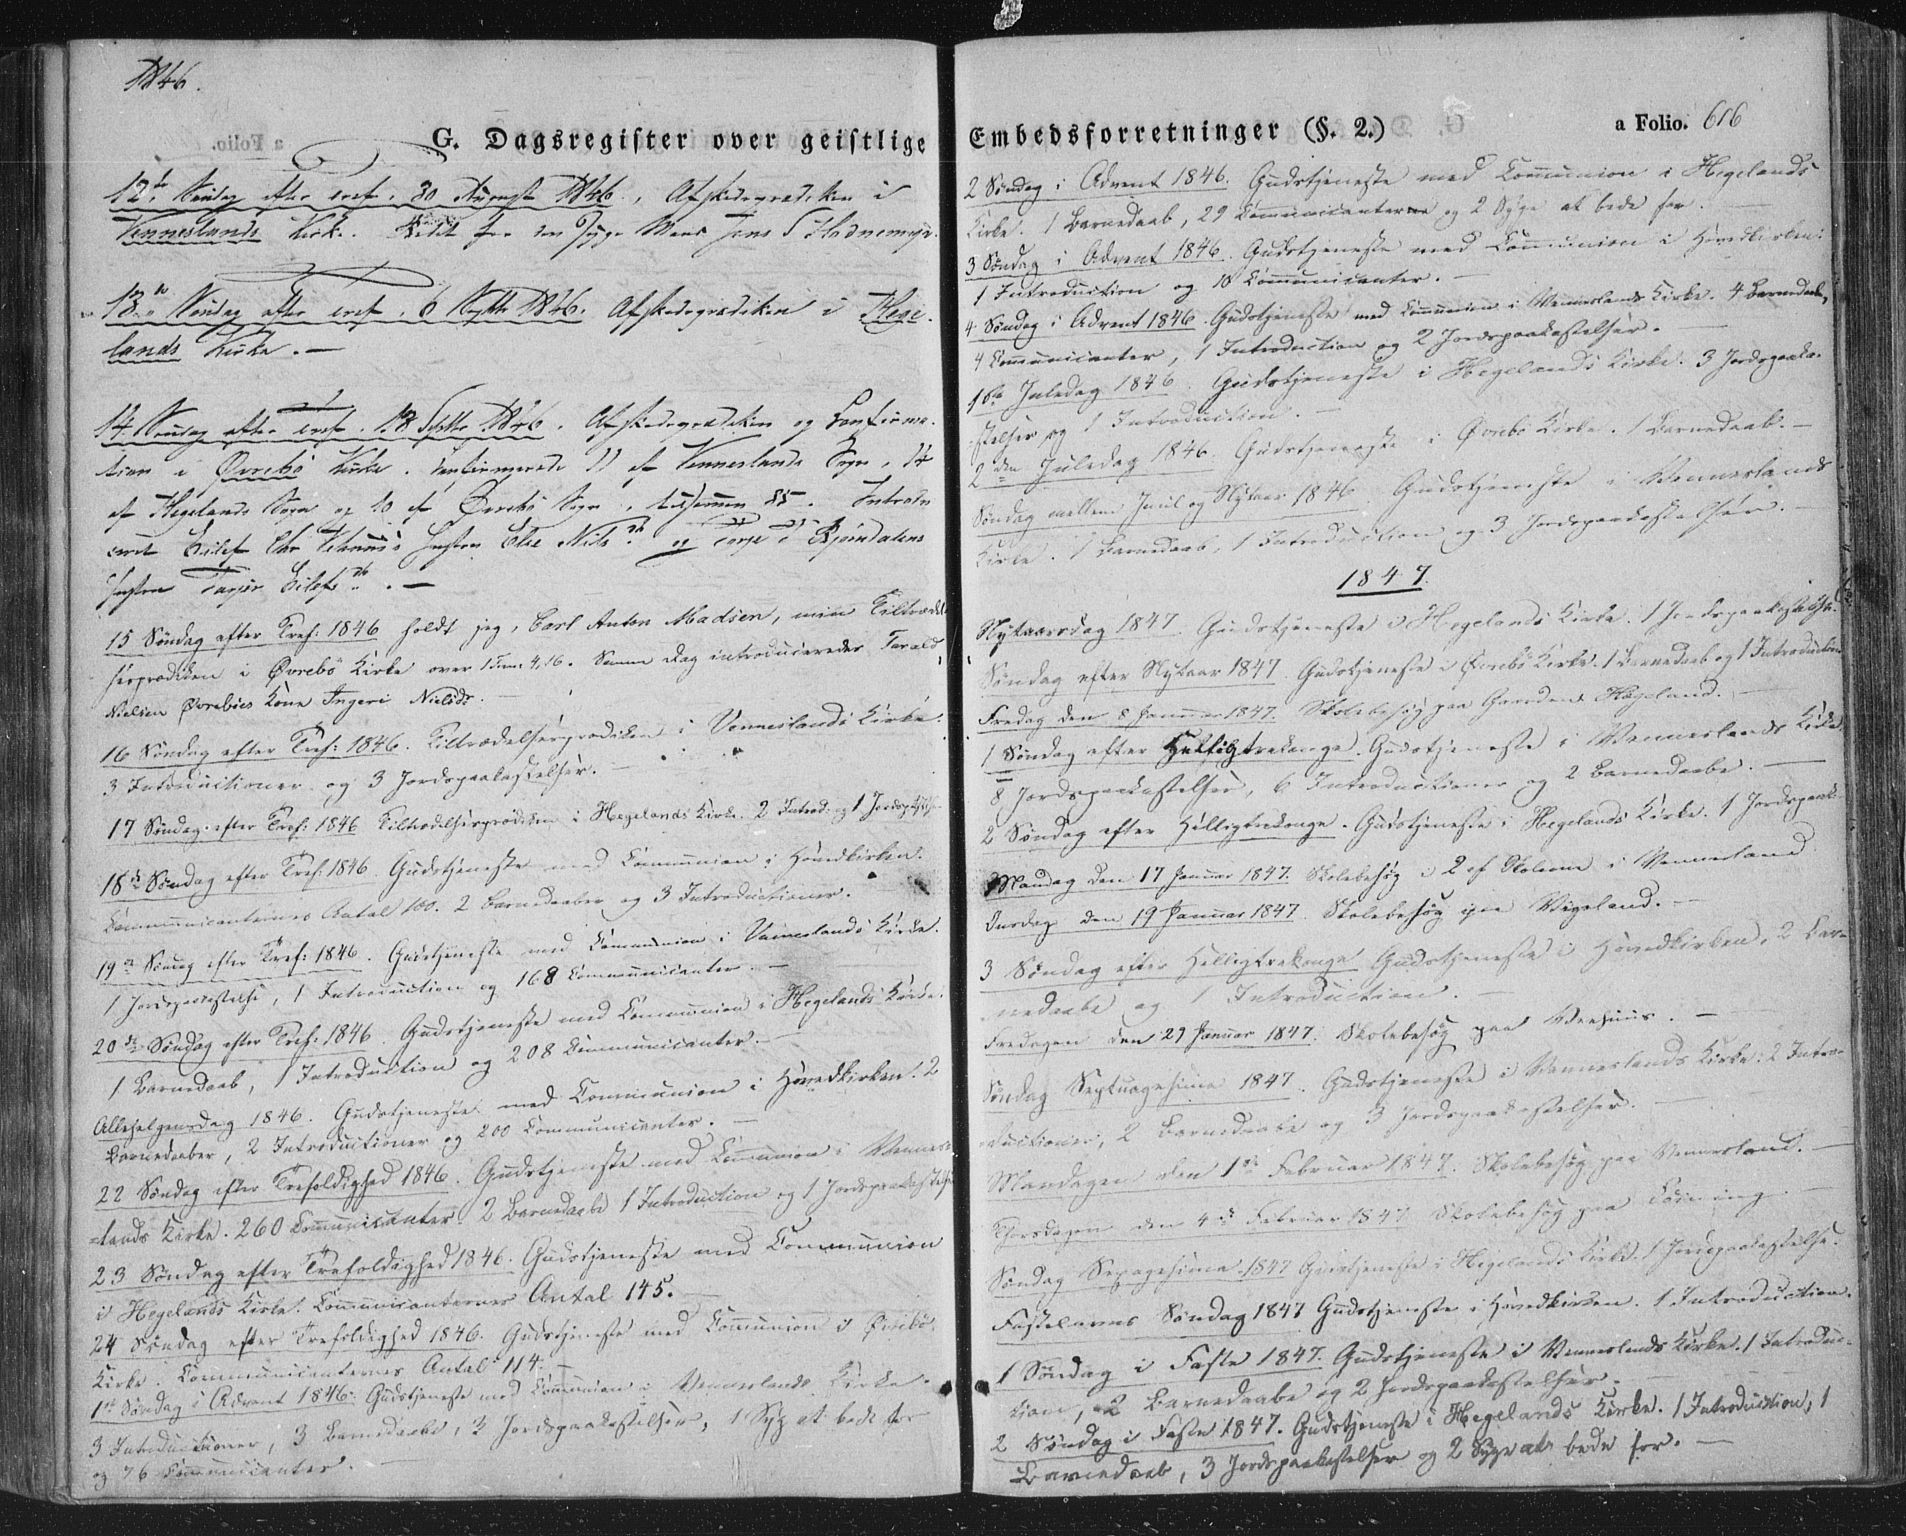 1846.
G. Dagsregister over geistlige
12te Søndag efter Tref. 30 August 1846. Afskedsprædiken i
Venneslands Kirke. Bedet for den syge Mand Jens S
13de Søndag efter Tref. 6 Septbr 1846. Afskedsprædiken i Hege-
lands Kirke. —
14 Søndag efter Tref. 13 Septbr 1846. Afskedsprædiken og Confirma-
tion i Øvrebö Kirke. Confirmerede 11 af Vennesland Sogn, 14
af Hegelands Sogn og 10 af Øvrebö Sogn, tilsammen 35. Introdu
ceret Eilef Chr Hustru Else Nilsdr og Torje Bjørndalens
Hustru Eilefsdr. —
15 Söndag efter Tref: 1846 holdt jeg, Carl Anton Madsen, min Tiltrædel-
sesprædiken i Øvrebö Kirke over 1 Tim: 4.16. Samme Dag introduceredes Tarald
Nielsen Øvreböes Kone Ingeri Nielsdr. —
16 Söndag efter Tref: 1846. Tiltrædelsesprædiken i Venneslands Kirke.
3 Introductioner og 3 Jordspaakastelser. —
17 Söndag efter Tref: 1846 Tiltrædelsesprædiken i Hegelands Kirke. 2 Introd: og 1 Jordsp
18de Söndag efter Tref: 1846 Gudstjeneste med Communion i Hovedkirken.
Communicanternes Antal 100. 2 Barnedaaber og 3 Introductioner.
19de Söndag efter Tref: 1846. Gudstjeneste med Communion i Venneslands Kirke.
1 Jordspaakastelse, 1 Introduction og 168 Communicanter. —
20de Söndag efter Tref: 1846. Gudstjeneste med Communion i Hegelands Kirke.
1 Barnedaab, 1 Introduction og 208 Communicanter. —
Allehelgensdag 1846. Gudstjeneste med Communion i Hovedkirken. 2
Barnedaaber, 2 Introductioner og 200 Communicanter. —
22 Söndag efter Trefoldighed 1846. Gudstjeneste med Communion i Vennes-
=lands Kirke. 260 Communicanter. 2 Barnedaabe 1 Introduction og 1 Jordspaakastelse
23 Söndag efter Trefoldighed 1846. Gudstjeneste med Communion
i Hegelands Kirke. Communicanternes Antal 145. —
24 Söndag efter Trefoldighed 1846. Gudstjeneste med Communion i Øvrebö
Kirke. Communicanternes Antal 114. —
1ste Söndag i Advent 1846. Gudstjeneste med Communion i Vennesland Kirke.
3 Introductioner, 3 Barnedaabe, 3 Jordspaakastelser, 1 Syg at bede for
og 76 Communicanter. —
Embedsforretninger (§. 2.)
a Folio. 616
2 Söndag i Advent 1846. Gudstjeneste med Communion i Hegelands
Kirke. 1 Barnedaab, 29 Communicanterne og 2 Syge at bede for. —
3 Söndag i Advent 1846. Gudstjeneste med Communion i Hovedkirken.
1 Introduction og 18 Communicanter. —
4 Söndag i Advent 1846. Gudstjeneste med Communion i Venneslands Kirke. 4 Barnedaabe,
4 Communicanter, 1 Introduction og 2 Jordspaakastelser. —
1ste Juledag 1846. Gudstjeneste i Hegelands Kirke. 3 Jordspaaka-
stelser og 1 Introduction. —
2den Juledag 1846. Gudstjeneste i Øvrebö Kirke. 1 Barnedaab. —
Söndag mellem Juul og Nytaar 1846 Gudstjeneste i Venneslands
Kirke. 1 Barnedaab, 1 Introduction og 3 Jordspaakastelser. —
1847.
Nytaarsdag 1847 Gudstjeneste i Hegelands Kirke. 1 Jordspaakastelse.
Söndag efter Nytaar 1847. Gudstjeneste i Øvrebö Kirke. 1 Barnedaab og 1 Introduction
Fredag den 8 Januar 1847. Skolebesög paa Gaarden Hægeland. —
1 Söndag efter Helligtrekonge. Gudstjeneste i Venneslands Kirke.
8 Jordspaakastelser, 6 Introductioner og 2 Barnedaabe. —
2 Söndag efter Helligtrekonge. Gudstjeneste i Hegelands Kirke. 1 Jordspaak.
Mandag den 17 Januar 1847. Skolebesög i 2 af Skolerne i Vennesland
Onsdag den 19 Januar 1847. Skolebesög paa Vigeland. —
3 Söndag efter Helligtrekonge Gudstjeneste i Hovedkirken, 2 Bar-
nedaabe og 1 Introduction. —
Fredagen den 29 Januar 1847. Skolebesög paa Veehuus. —
Söndag Septuagesima 1847. Gudstjeneste i Venneslands Kirke. 2 Intro-
ductioner, 2 Barnedaabe og 3 Jordspaakastelser. —
Mandagen den 1ste Februar 1847. Skolebesög paa Vennesland. —
Thorsdagen den 4de Februar 1847 Skolebesög paa
Söndag Sexagesima 1847 Gudstjeneste i Hegelands Kirke. 1 Jordspaakastelse.
Fastelavns Söndag 1847 Gudstjeneste i Hovedkirken. 1 Introduction.
1 Söndag i Faste 1847. Gudstjeneste i Venneslands Kirke. 1 Introduc-
tion, 2 Barnedaabe og 2 Jordspaakastelser. —
2 Söndag i Faste 1847. Gudstjeneste i Hegelands Kirke. 1 Introduction, 1
Barnedaab, 3 Jordspaakastelser og 2 Syge at bede for. —